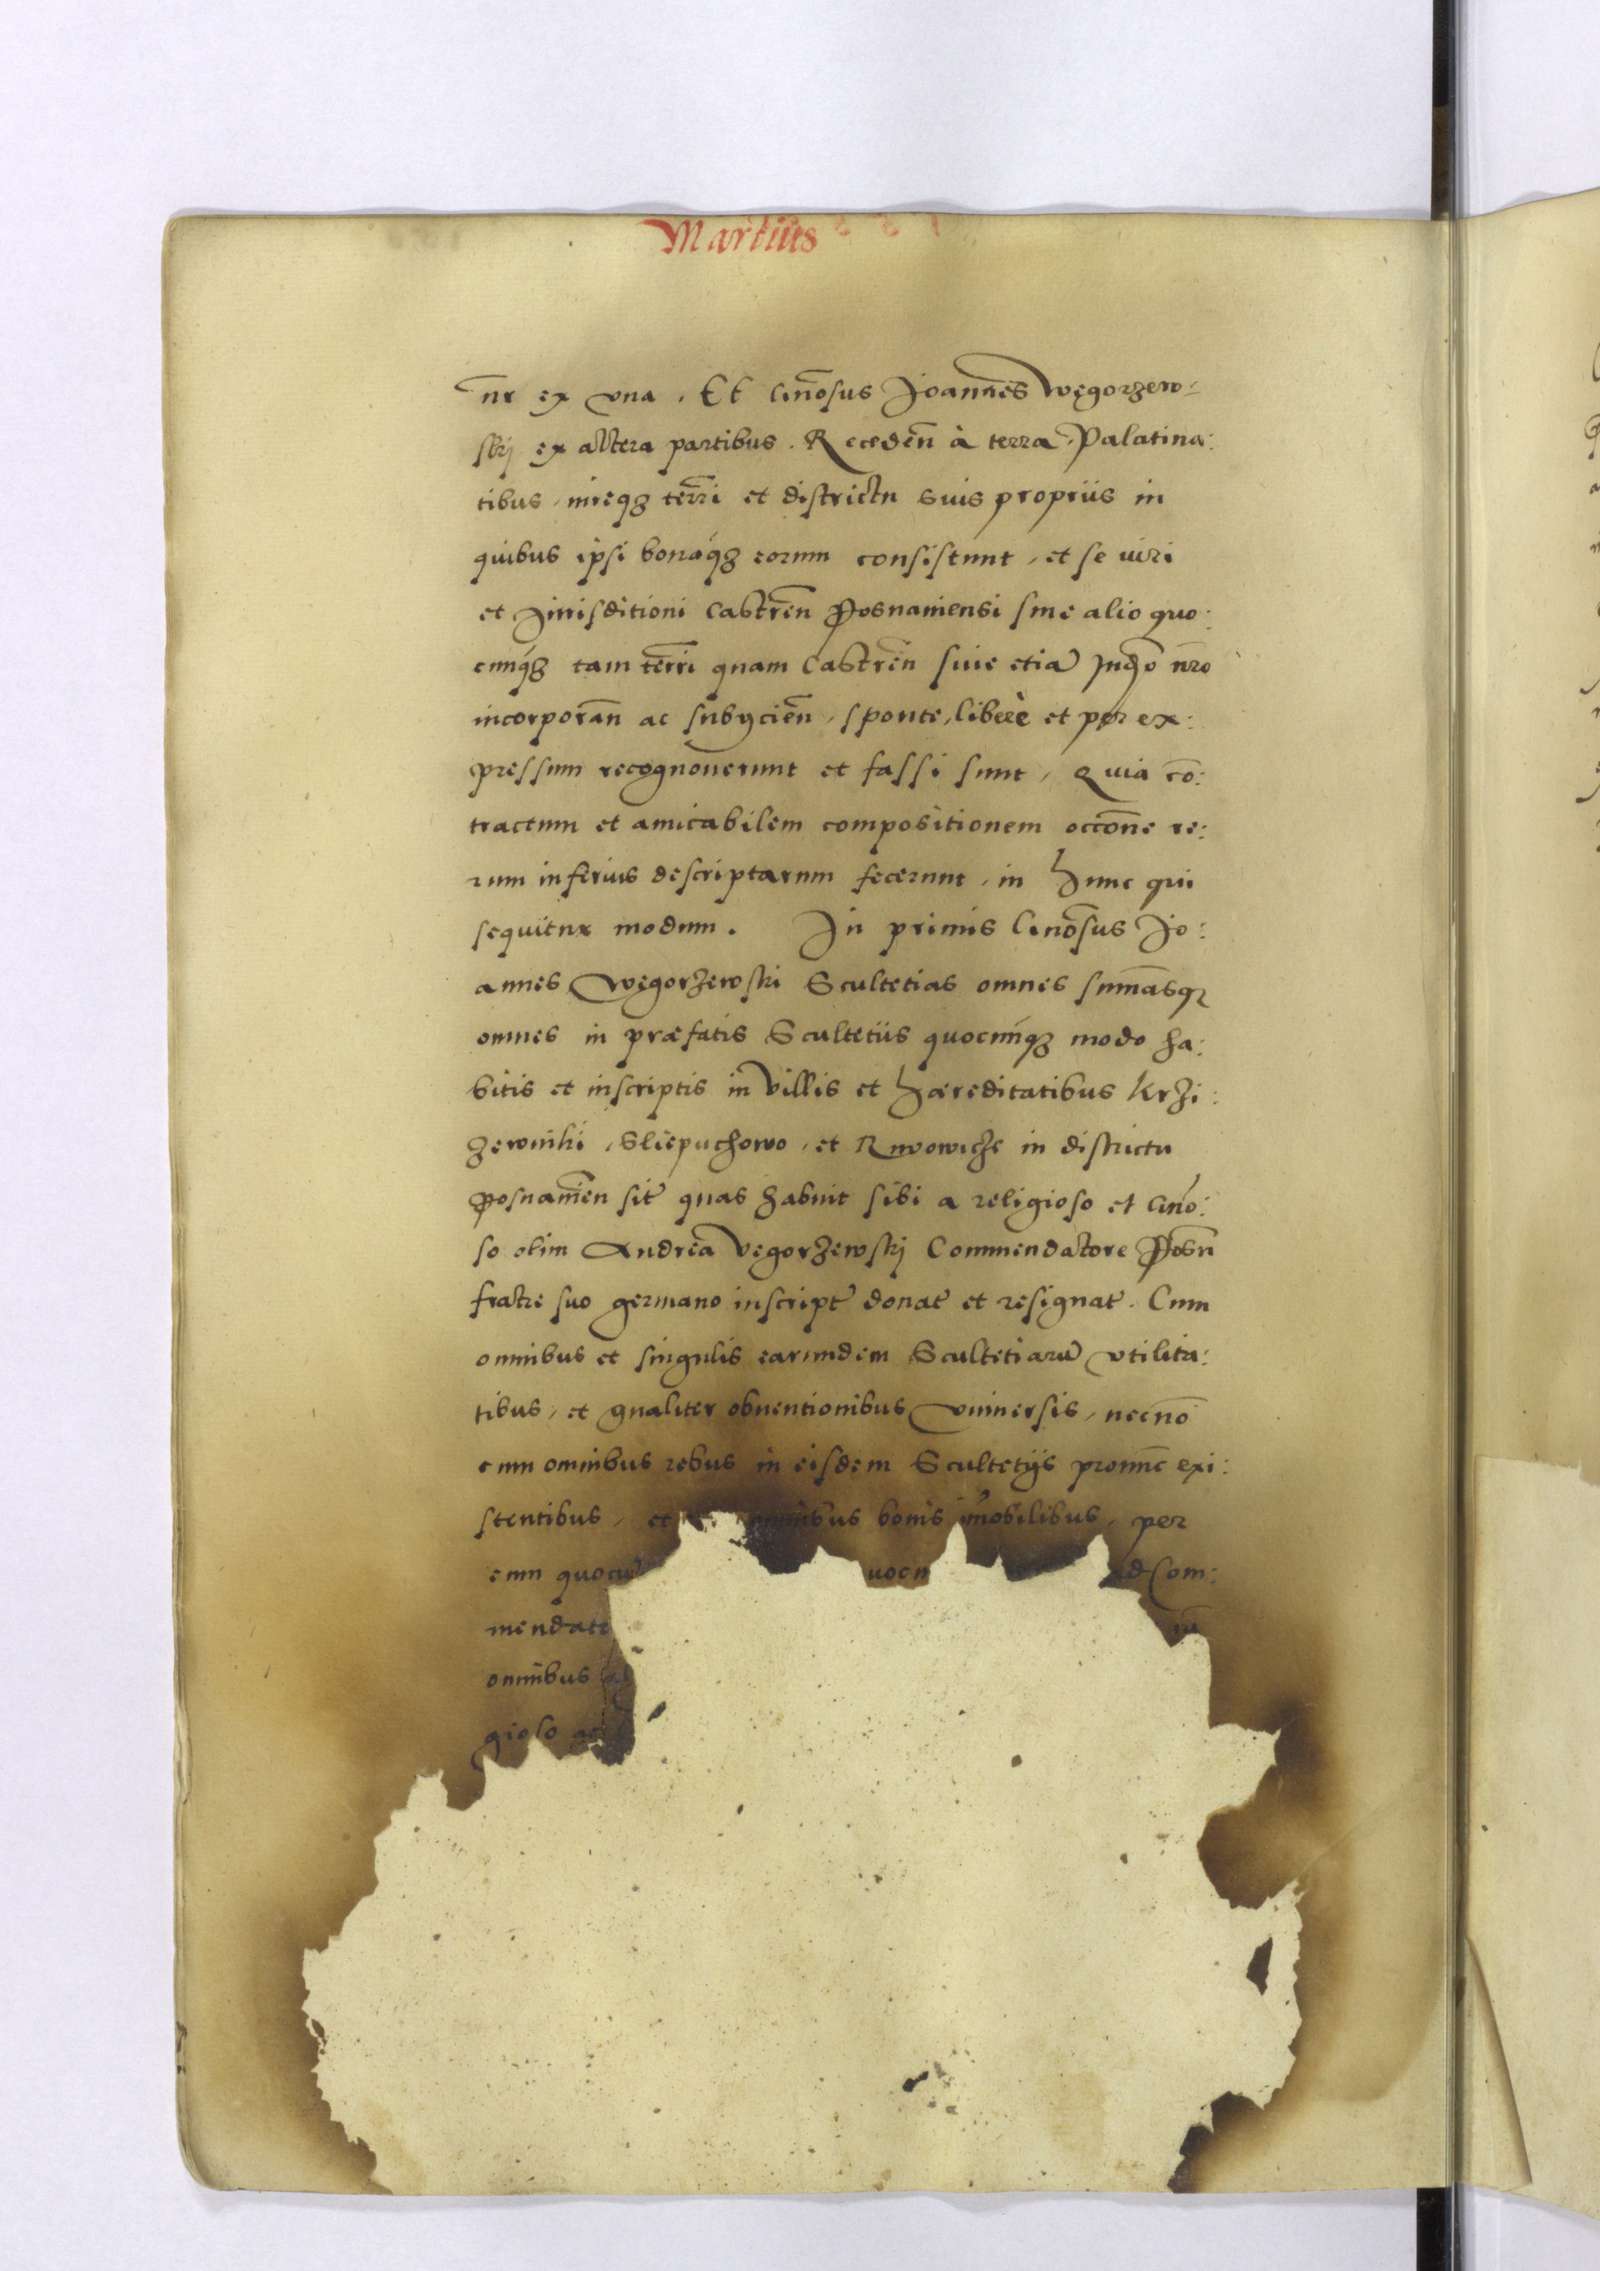 Martius
nr ex vna. Et Gnōsus Joannes Węgorzew:
skij ex altera partibus. Recedeñ à terra Palatina:
tibus, iureq3 terrī et districtu suis propriis in
quibus ipsi bonaq3 eorum consistunt, et se iuri
et Jurisditioni Castreñ Posnaniensi sine alio quo:
cunq3 tam terrī quam Castreñ siue etiā Judo nro
incorporañ ac subycieñ, sponte, liberè et per ex:
pressum recognouerunt et fassi sunt, Quia cō:
tractum et amicabilem compositionem occōne re:
rum inferius descriptarum fecerunt, in hunc qui
sequitur modum. In primis Gnōsus Jo:
annes Węgorzewski Scultetias omnes sum̄asq3
omnes in præfatis Scultetiis quocunq3 modo ha:
bitis et inscriptis in villis et hæreditatibus Krzi:
zewniki, Sliepuchowo, et Rwowicze in districtu
Posnanień sit quas habuit sibi a religioso et Gnō:
so olim Andrea Vęgorzewskij Commendatore Posñ
fratre suo germano inscript donat et resignat. Cum
omnibus et singulis earundem Scultetiarū vtilita:
tibus, et gnaliter obuentionibus vniuersis, necnō
cum omnibus rebus in eisdem Scultetijs pronunc exi:
stentibus, et omnibus bonis im̄obilibus, per
eum quocu uocu ad Com:
mendato
omnibus
gioso